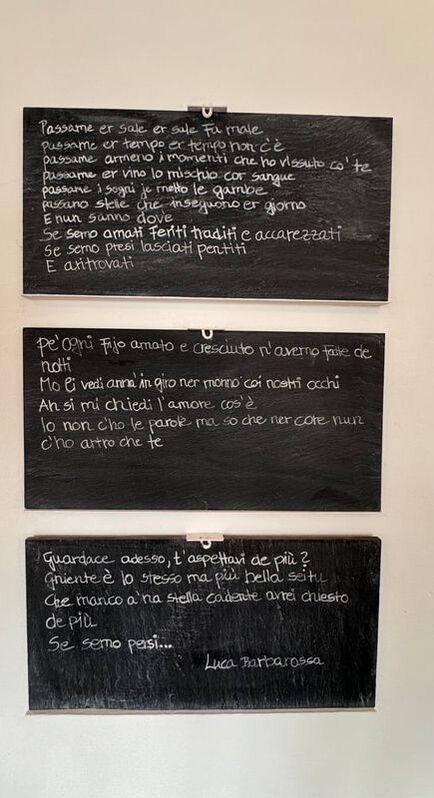 Passame er sale er sale fa male
passame er tempo er tempo non c'è
passame armeno i momenti che ho vissuto co' te
passame er vino lo mischio cor sangue
passane i sogni je metto le gambe
passano stelle che inseguono er giorno
E nun sanno dove
Se semo amati feriti traditi e accarezzati
Se semo presi lasciati pentiti
E aritrovati
pe' ogni Fijo amato e cresciuto n'averno fatte de
notti
Mo li vedi anna' in giro ner monno coi nostri occhi
Ah si mi chiedi l'amore cos'è
Io non c'ho le parole ma so che ner core nun
c'ho artro che te
Guardace adesso, t'aspettavi de più?
Gniente è lo stesso ma più bella sei tu
Che manco a 'na stella cadente avrei chiesto
de più
Se semo persi...
Luca Barbarossa